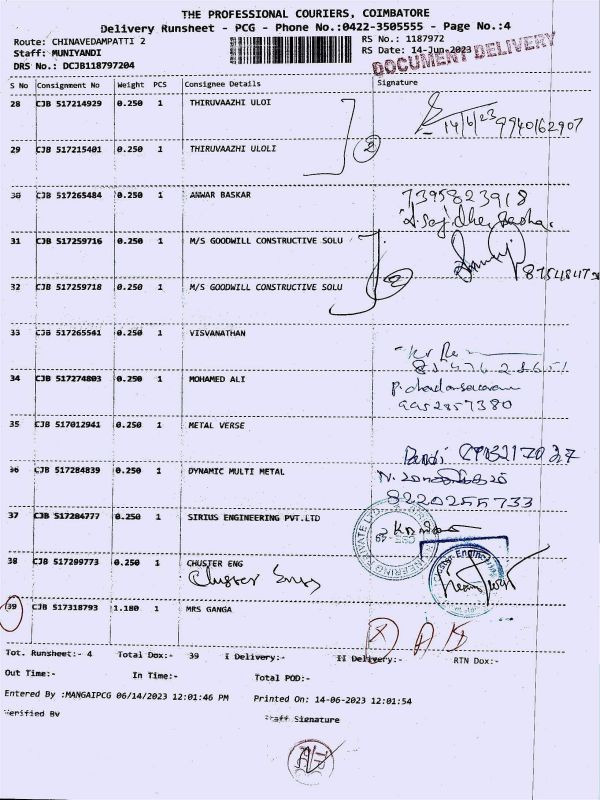 THE PROFESSIONAL COURIERS, COIMBATORE
Delivery Runsheet - PCG - Phone No.:0422-3505555 - Page No.:4
Route: CHINAVEDAMPATTI 2
RS No.: 1187972
Staff: MUNIYANDI
RS Date: 14-Jun-2023
DRS No.: DCJB118797204
DOCUMENT DELIVERY
S No Consignment No Weight PCS Consignee Details Signature
28 CJB 517214929 0.250 1 THIRUVAAZHI ULOI
14/6/23 9940162907
29 CJB 517215401 0.250 1 THIRUVAAZHI ULOLI
2
30 CJB 517265484 0.250 1 ANWAR BASKAR
7395823918
31 CJB 517259716 0.250 1 M/S GOODWILL CONSTRUCTIVE SOLU
2
32 CJB 517259718 0.250 1 M/S GOODWILL CONSTRUCTIVE SOLU
33 CJB 517265541 0.250 1 VISVANATHAN
34 CJB 517274803 0.250 1 MOHAMED ALI
9952857380
35 CJB 517012941 0.250 1 METAL VERSE
36 CJB 517284839 0.250 1 DYNAMIC MULTI METAL
8220255733
37 CJB 517284777 0.250 1 SIRIUS ENGINEERING PVT.LTD
38 CJB 517299773 0.250 1 CHUSTER ENG
Cluster Engg
39 CJB 517318793 1.180 1 MRS GANGA
Tot. Runsheet:- 4 Total Dox:- 39 I Delivery:- II Delivery:- RTN Dox:-
Out Time:- In Time:- Total POD:-
Entered By :MANGAIPCG 06/14/2023 12:01:46 PM Printed On: 14-06-2023 12:01:54
Verified By Staff Signature